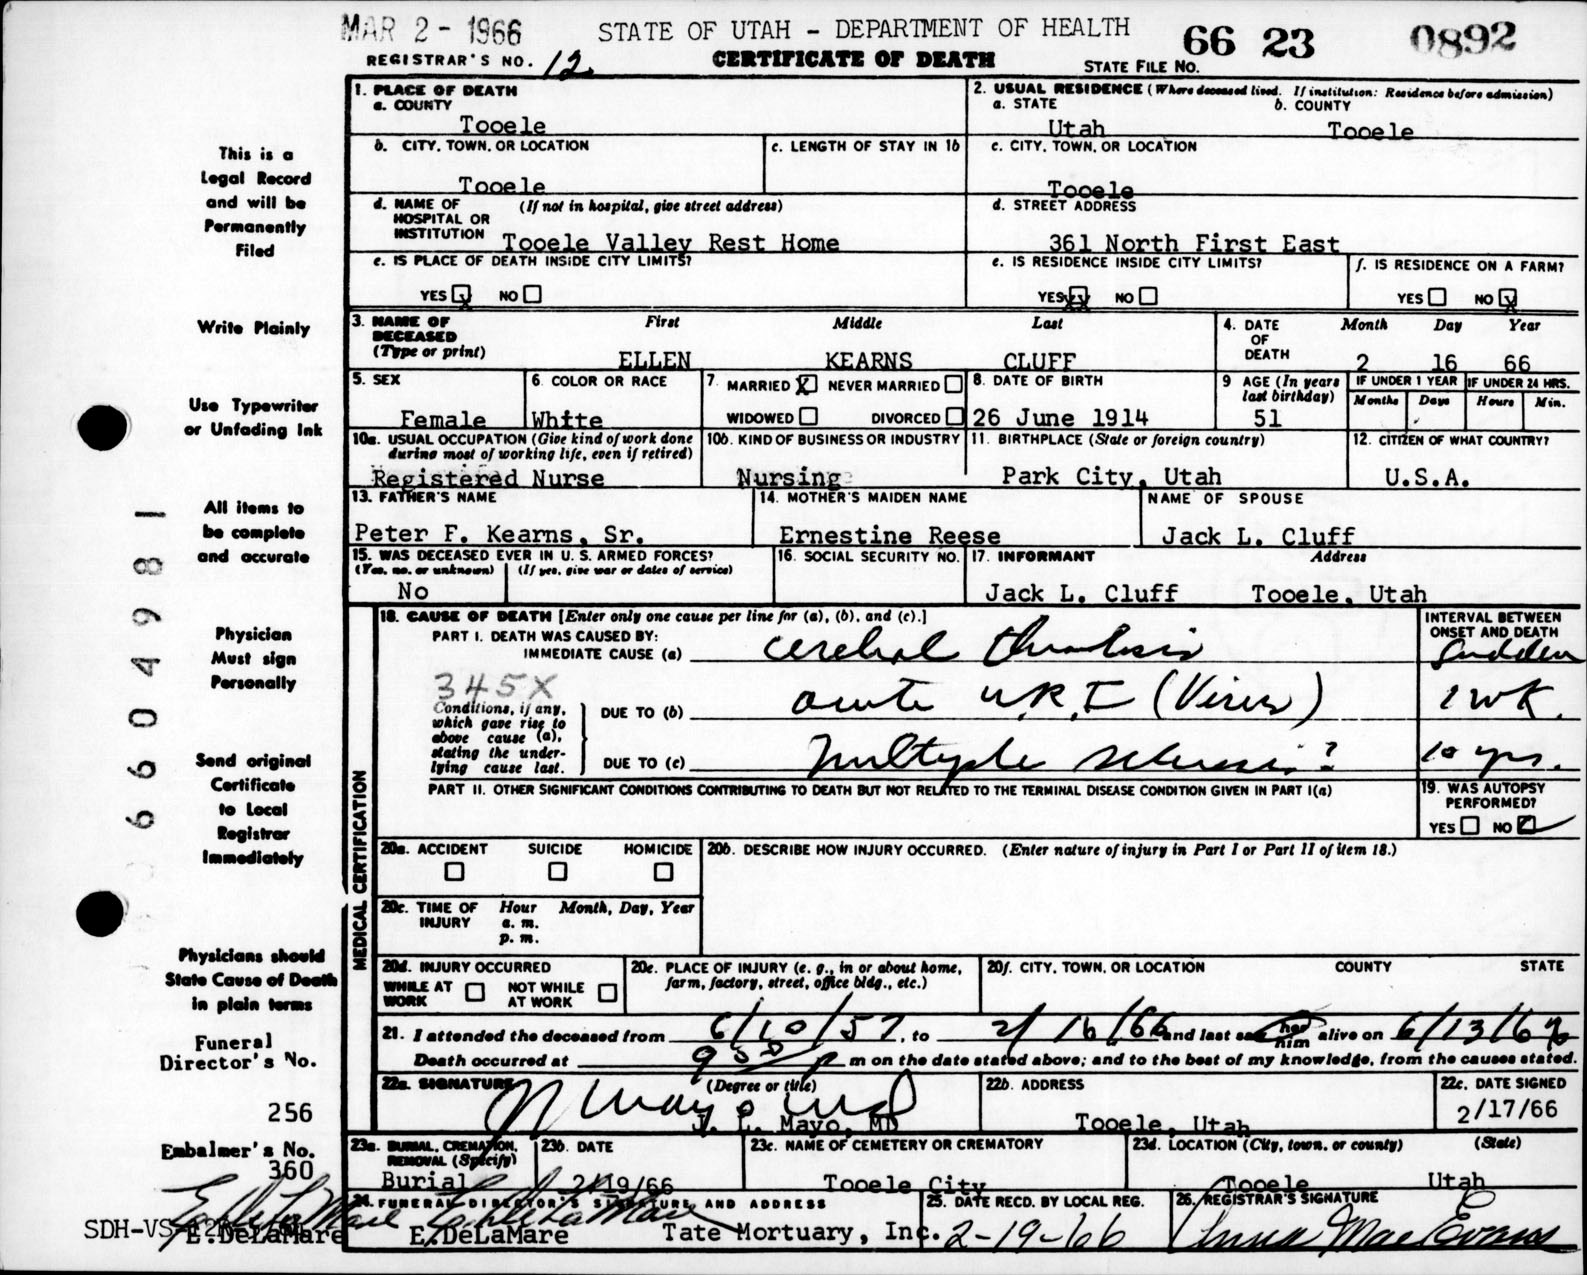 MAR 2 - 1966
STATE OF UTAH - DEPARTMENT OF HEALTH
66 23 0892
REGISTRAR'S NO. 12
CERTIFICATE OF DEATH
STATE FILE NO.
1. PLACE OF DEATH
a. COUNTY
Tooele
2. USUAL RESIDENCE (Where deceased lived. If institution: Residence before admission)
a. STATE b. COUNTY
Utah Tooele
b. CITY, TOWN, OR LOCATION
Tooele
c. LENGTH OF STAY IN 1b
c. CITY, TOWN, OR LOCATION
Tooele
d. NAME OF HOSPITAL OR INSTITUTION (If not in hospital, give street address)
Tooele Valley Rest Home
d. STREET ADDRESS
361 North First East
e. IS PLACE OF DEATH INSIDE CITY LIMITS?
YES X NO
e. IS RESIDENCE INSIDE CITY LIMITS?
YES XX NO
f. IS RESIDENCE ON A FARM?
YES NO X
3. NAME OF DECEASED (Type or print)
First Middle Last
ELLEN KEARNS CLUFF
4. DATE OF DEATH
Month Day Year
2 16 66
5. SEX
Female
6. COLOR OR RACE
White
7. MARRIED X NEVER MARRIED
WIDOWED DIVORCED
8. DATE OF BIRTH
26 June 1914
9 AGE (In years last birthday)
51
IF UNDER 1 YEAR
Months Days
IF UNDER 24 HRS.
Hours Min.
10a. USUAL OCCUPATION (Give kind of work done during most of working life, even if retired)
Registered Nurse
10b. KIND OF BUSINESS OR INDUSTRY
Nursing
11. BIRTHPLACE (State or foreign country)
Park City, Utah
12. CITIZEN OF WHAT COUNTRY?
U.S.A.
13. FATHER'S NAME
Peter F. Kearns, Sr.
14. MOTHER'S MAIDEN NAME
Ernestine Reese
NAME OF SPOUSE
Jack L. Cluff
15. WAS DECEASED EVER IN U. S. ARMED FORCES?
(Yes, no, or unknown) (If yes, give war or dates of service)
No
16. SOCIAL SECURITY NO.
17. INFORMANT Address
Jack L. Cluff Tooele, Utah
MEDICAL CERTIFICATION
18. CAUSE OF DEATH [Enter only one cause per line for (a), (b), and (c).]
INTERVAL BETWEEN ONSET AND DEATH
PART I. DEATH WAS CAUSED BY:
IMMEDIATE CAUSE (a) cerebral thrombosis Sudden
345X
Conditions, if any, which gave rise to above cause (a), stating the underlying cause last.
DUE TO (b) acute U.R.I (Virus) 1 WK.
DUE TO (c) Multiple sclerosis? 10 yrs.
PART II. OTHER SIGNIFICANT CONDITIONS CONTRIBUTING TO DEATH BUT NOT RELATED TO THE TERMINAL DISEASE CONDITION GIVEN IN PART I(a)
19. WAS AUTOPSY PERFORMED?
YES NO ✓
20a. ACCIDENT SUICIDE HOMICIDE
20b. DESCRIBE HOW INJURY OCCURRED. (Enter nature of injury in Part I or Part II of item 18.)
20c. TIME OF INJURY Hour Month, Day, Year
a. m.
p. m.
20d. INJURY OCCURRED
WHILE AT WORK NOT WHILE AT WORK
20e. PLACE OF INJURY (e. g., in or about home, farm, factory, street, office bldg., etc.)
20f. CITY, TOWN, OR LOCATION COUNTY STATE
21. I attended the deceased from 6/10/57, to 2/16/66 and last saw her him alive on
Death occurred at 9 p m on the date stated above; and to the best of my knowledge, from the causes stated.
22a. SIGNATURE (Degree or title)
J. L. Mayo, MD
22b. ADDRESS
Tooele, Utah
22c. DATE SIGNED
2/17/66
23a. BURIAL, CREMATION, REMOVAL (Specify)
Burial
23b. DATE
2/19/66
23c. NAME OF CEMETERY OR CREMATORY
Tooele City
23d. LOCATION (City, town, or county) (State)
Tooele Utah
24. FUNERAL DIRECTOR'S SIGNATURE AND ADDRESS
E.DeLaMare Tate Mortuary, Inc.
25. DATE RECD. BY LOCAL REG.
2-19-66
26. REGISTRAR'S SIGNATURE
Anna Mae Evans
This is a
Legal Record
and will be
Permanently
Filed
Write Plainly
Use Typewriter
or Unfading Ink
All items to
be complete
and accurate
Physician
Must sign
Personally
Send original
Certificate
to Local
Registrar
Immediately
Physicians should
State Cause of Death
in plain terms
Funeral
Director's No.
256
Embalmer's No.
360
E.DeLaMare
SDH-VS
66049 81